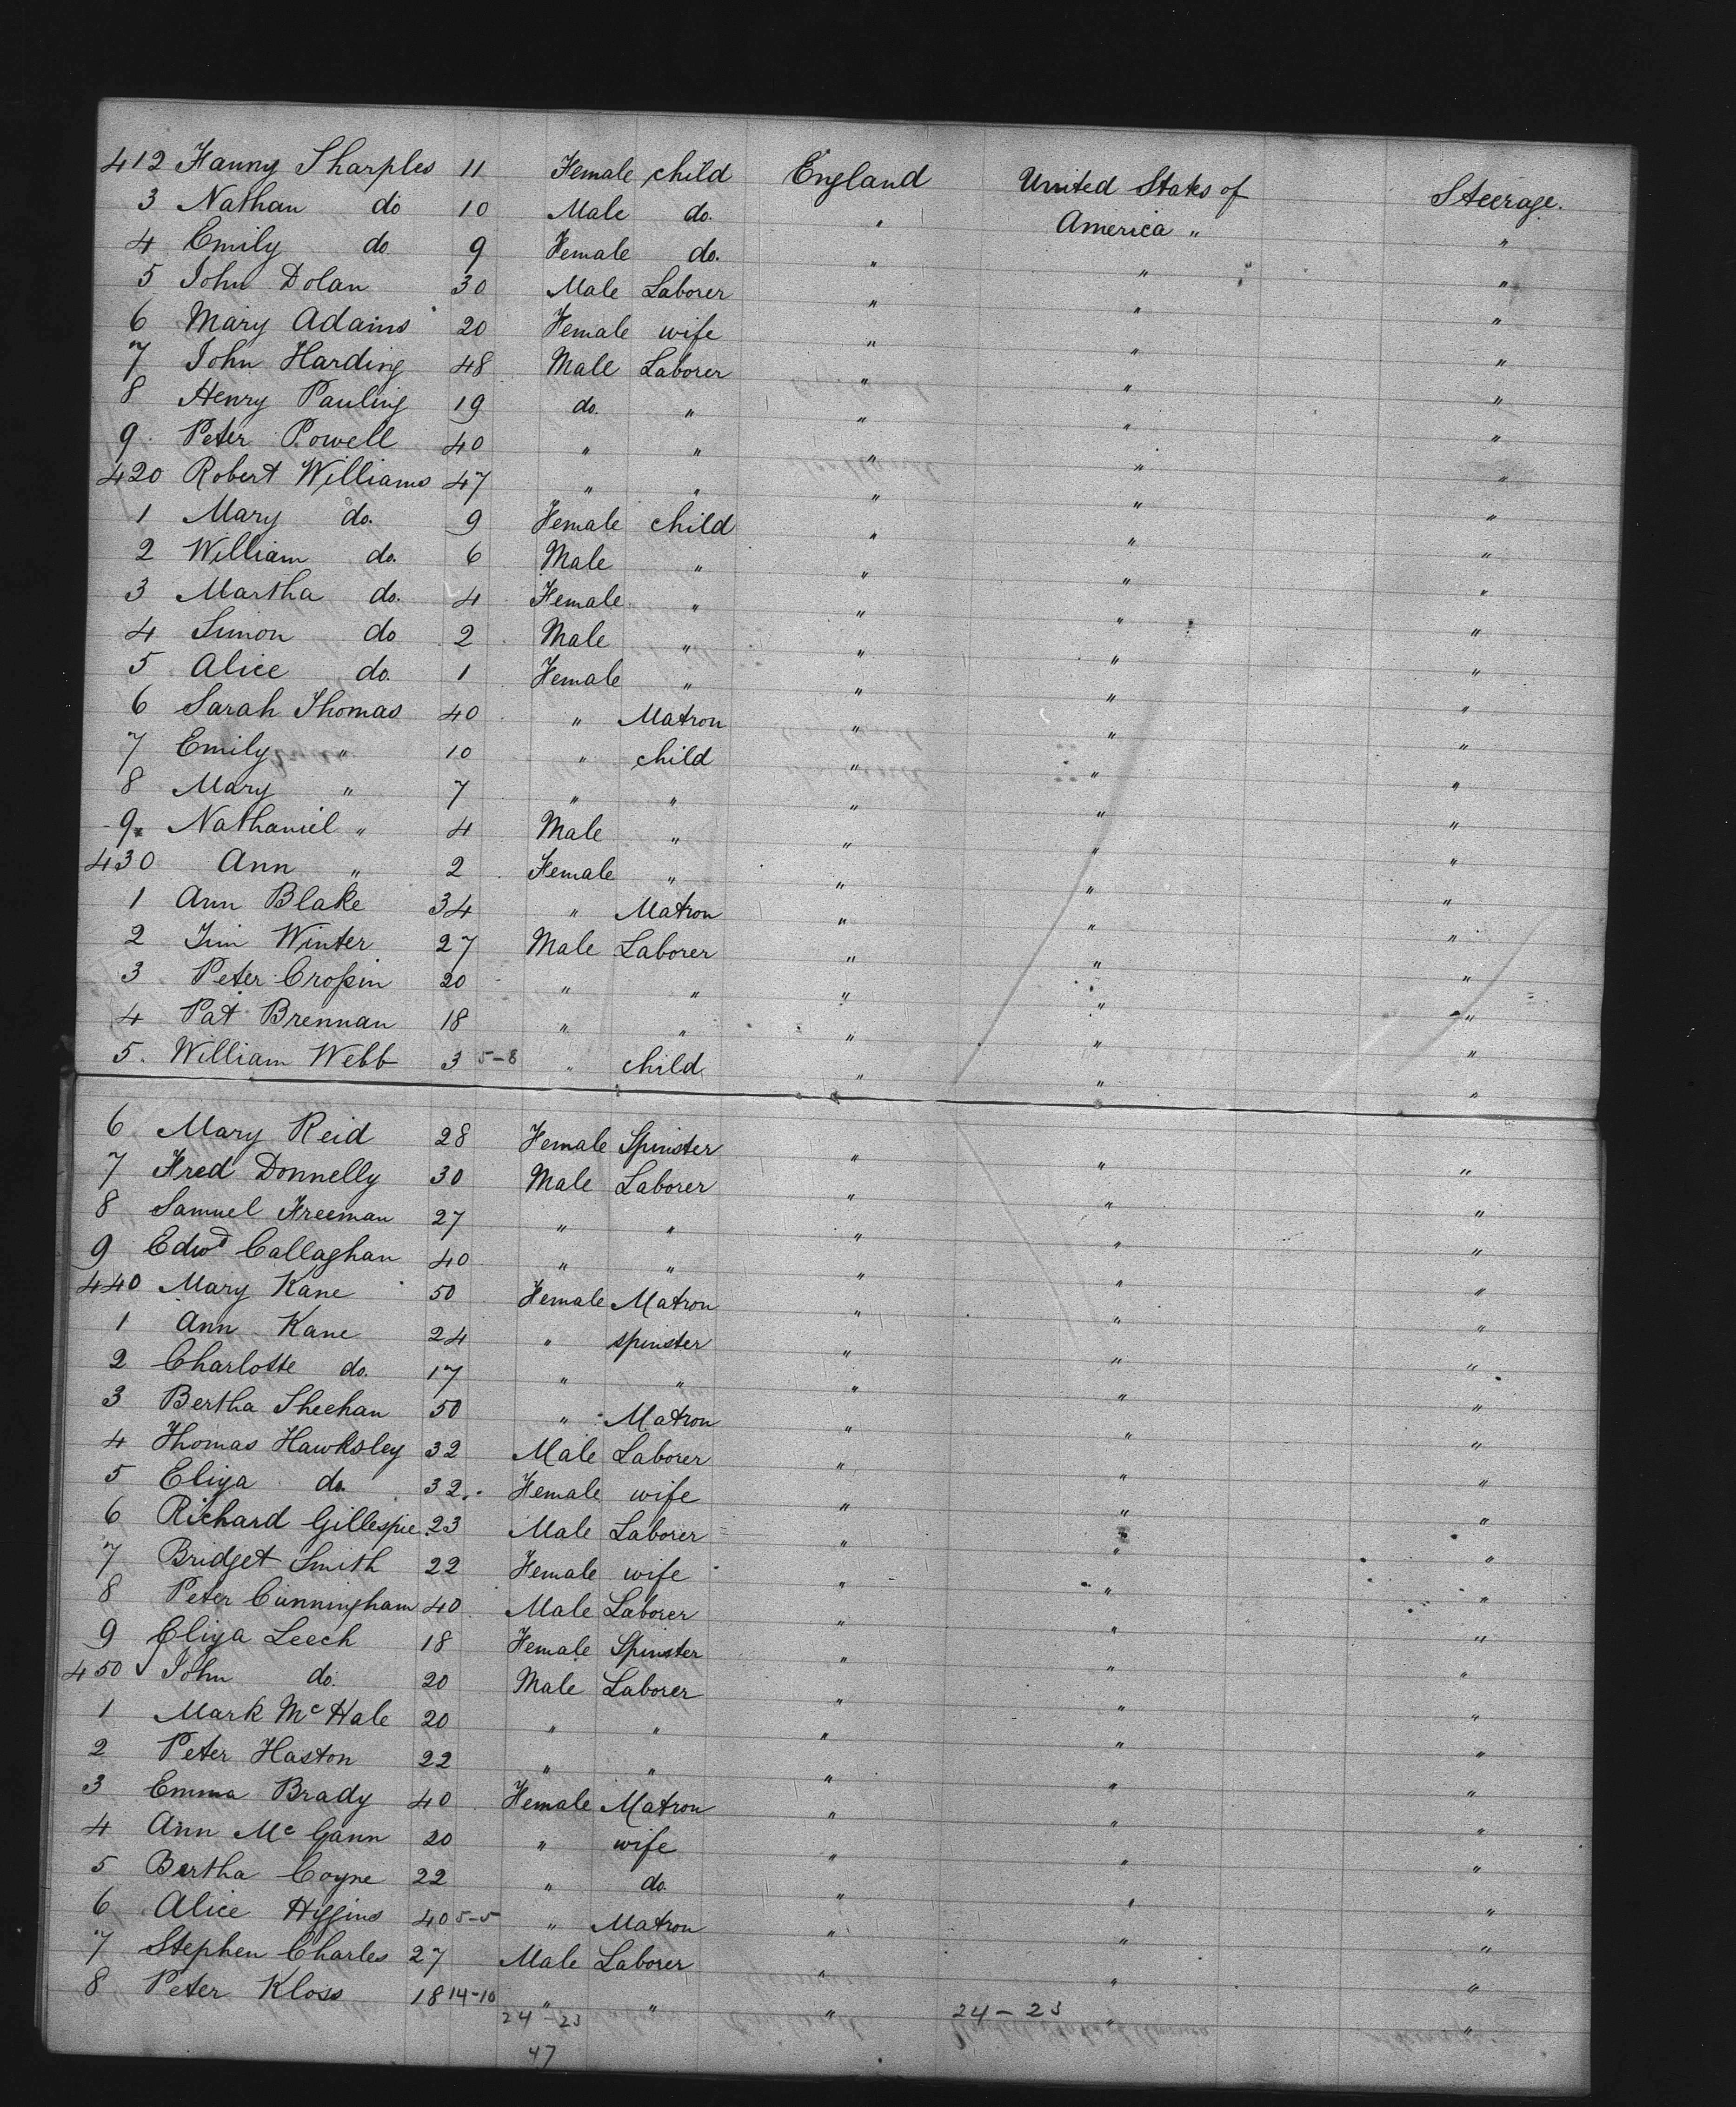 412 Fanny Sharples 11 Female child England United States of America " Steerage.
3 Nathan do 10 Male do. " "
4 Emily do. 9 Female do. " " "
5 John Dolan 30 Male Laborer " " "
6 Mary Adams 20 Female wife " " "
7 John Harding 48 Male Laborer " " "
8 Henry Pauling 19 do. " " " "
9. Peter Powell 40 " " " " "
420 Robert Williams 47 " " " " "
1 Mary do. 9 Female child " " "
2 William do. 6 Male " " " "
3 Martha do. 4 Female " " " "
4 Simon do 2 Male " " " "
5 Alice do. 1 Female " " " "
6 Sarah Thomas 40 " Matron " " "
7 Emily " 10 " child " " "
8 Mary " 7 " " " " "
9. Nathaniel " 4 Male " " " "
430 Ann " 2 Female " " " "
1 Ann Blake 34 " Matron " " "
2 Jim Winter 27 Male Laborer " " "
3 Peter Crossin 20 " " " " "
4 Pat Brennan 18 " " " " "
5. William Webb 3 5-8 " child " " "
6 Mary Reid 28 Female Spinster " " "
7 Fred Donnelly 30 Male Laborer " " "
8 Samuel Freeman 27 " " " " "
9 Edwd Callaghan 40 " " " " "
440 Mary Kane 50 Female Matron " " "
1 Ann Kane 24 " spinster " " "
2 Charlotte do. 17 " " " " "
3 Bertha Sheehan 50 " Matron " " "
4 Thomas Hawksley 32 Male Laborer " " "
5 Eliza do. 32 Female wife " " "
6 Richard Gillespie 23 Male Laborer " " "
7 Bridget Smith 22 Female wife " " "
8 Peter Cunningham 40 Male Laborer " " "
9 Eliza Leech 18 Female Spinster " " "
450 John do. 20 Male Laborer " " "
1 Mark McHale 20 " " " " "
2 Peter Haston 22 " " " " "
3 Emma Brady 40 Female Matron " " "
4 Ann McGann 20 " wife " " "
5 Bertha Coyne 22 " do. " " "
6 Alice Higgins 40 5-5 " Matron " " "
7 Stephen Charles 27 Male Laborer " " "
8 Peter Kloss 18 14-10 " " " " "
24-23 24-23
47